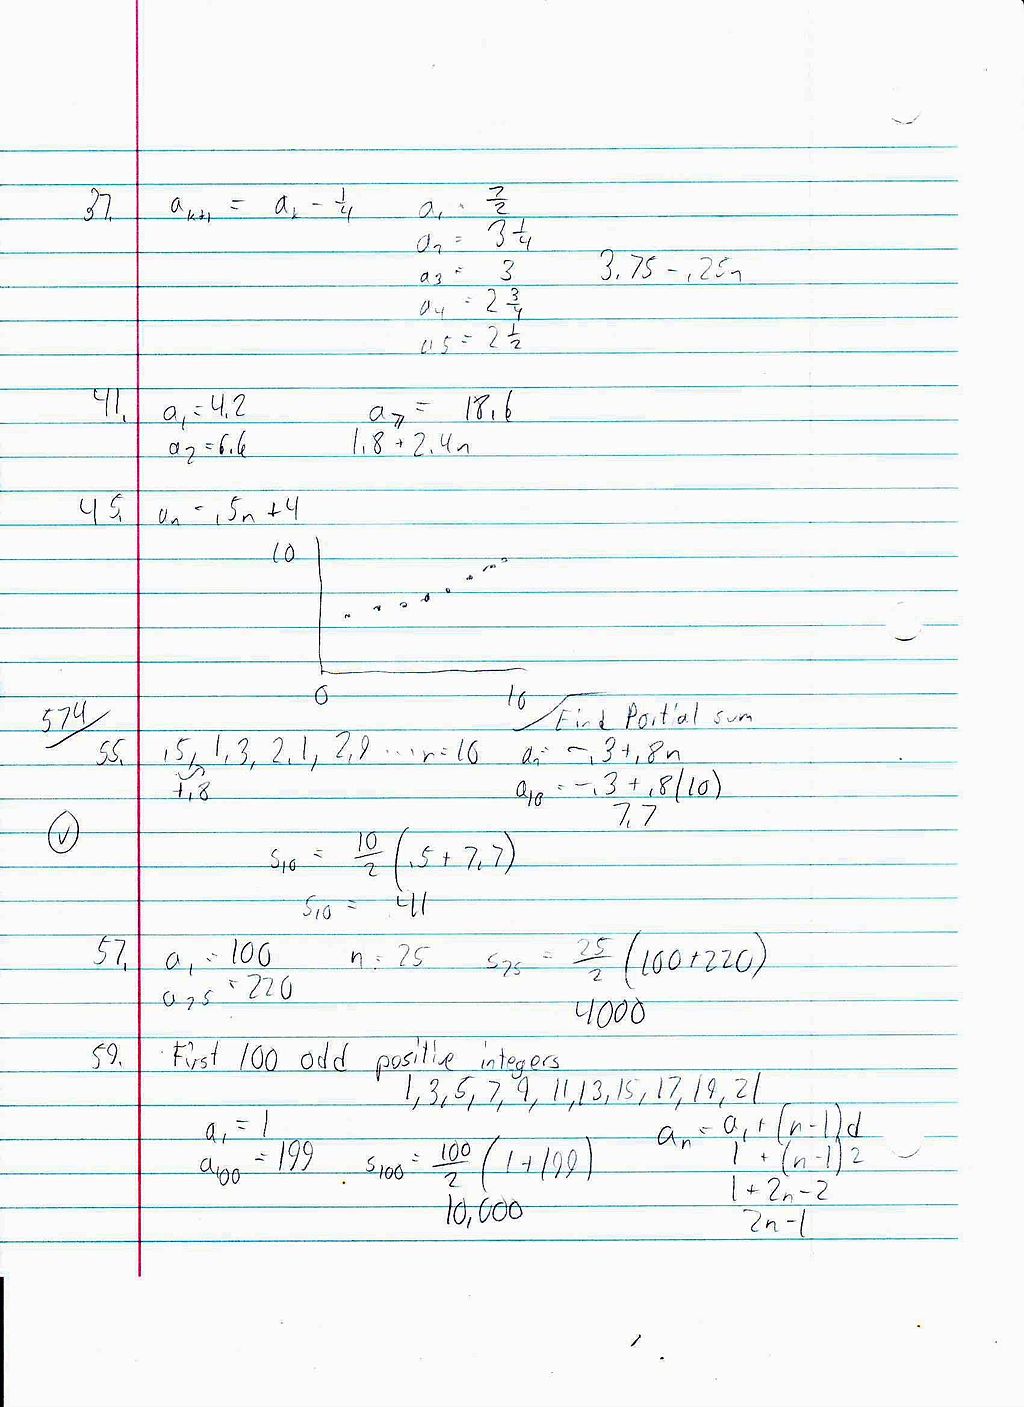 37. aₖ₊₁ = aₖ - 1/4 a₁ = 7/2
a₂ = 3 1/4
a₃ = 3 3.75 - .25n
a₄ = 2 3/4
a5 = 2 1/2
41. a₁ = 4.2 a₇ = 18.6
a₂ = 6.6 1.8 + 2.4n
45. aₙ = .5n + 4
10
0 10
574 Find Partial sum
55. .5, 1.3, 2.1, 2.9 ... n = 10 aₙ = -.3 + .8n
+.8 a₁₀ = -.3 + .8(10)
7.7
S₁₀ = 10/2 (.5 + 7.7)
S₁₀ = 41
57. a₁ = 100 n = 25 S₂₅ = 25/2 (100 + 220)
a₂₅ = 220
4000
59. First 100 odd positive integers
1, 3, 5, 7, 9, 11, 13, 15, 17, 19, 21
a₁ = 1 aₙ = a₁ + (n-1)d
a₁₀₀ = 199 S₁₀₀ = 100/2 (1 + 199) 1 + (n-1)2
1 + 2n - 2
10,000 2n - 1